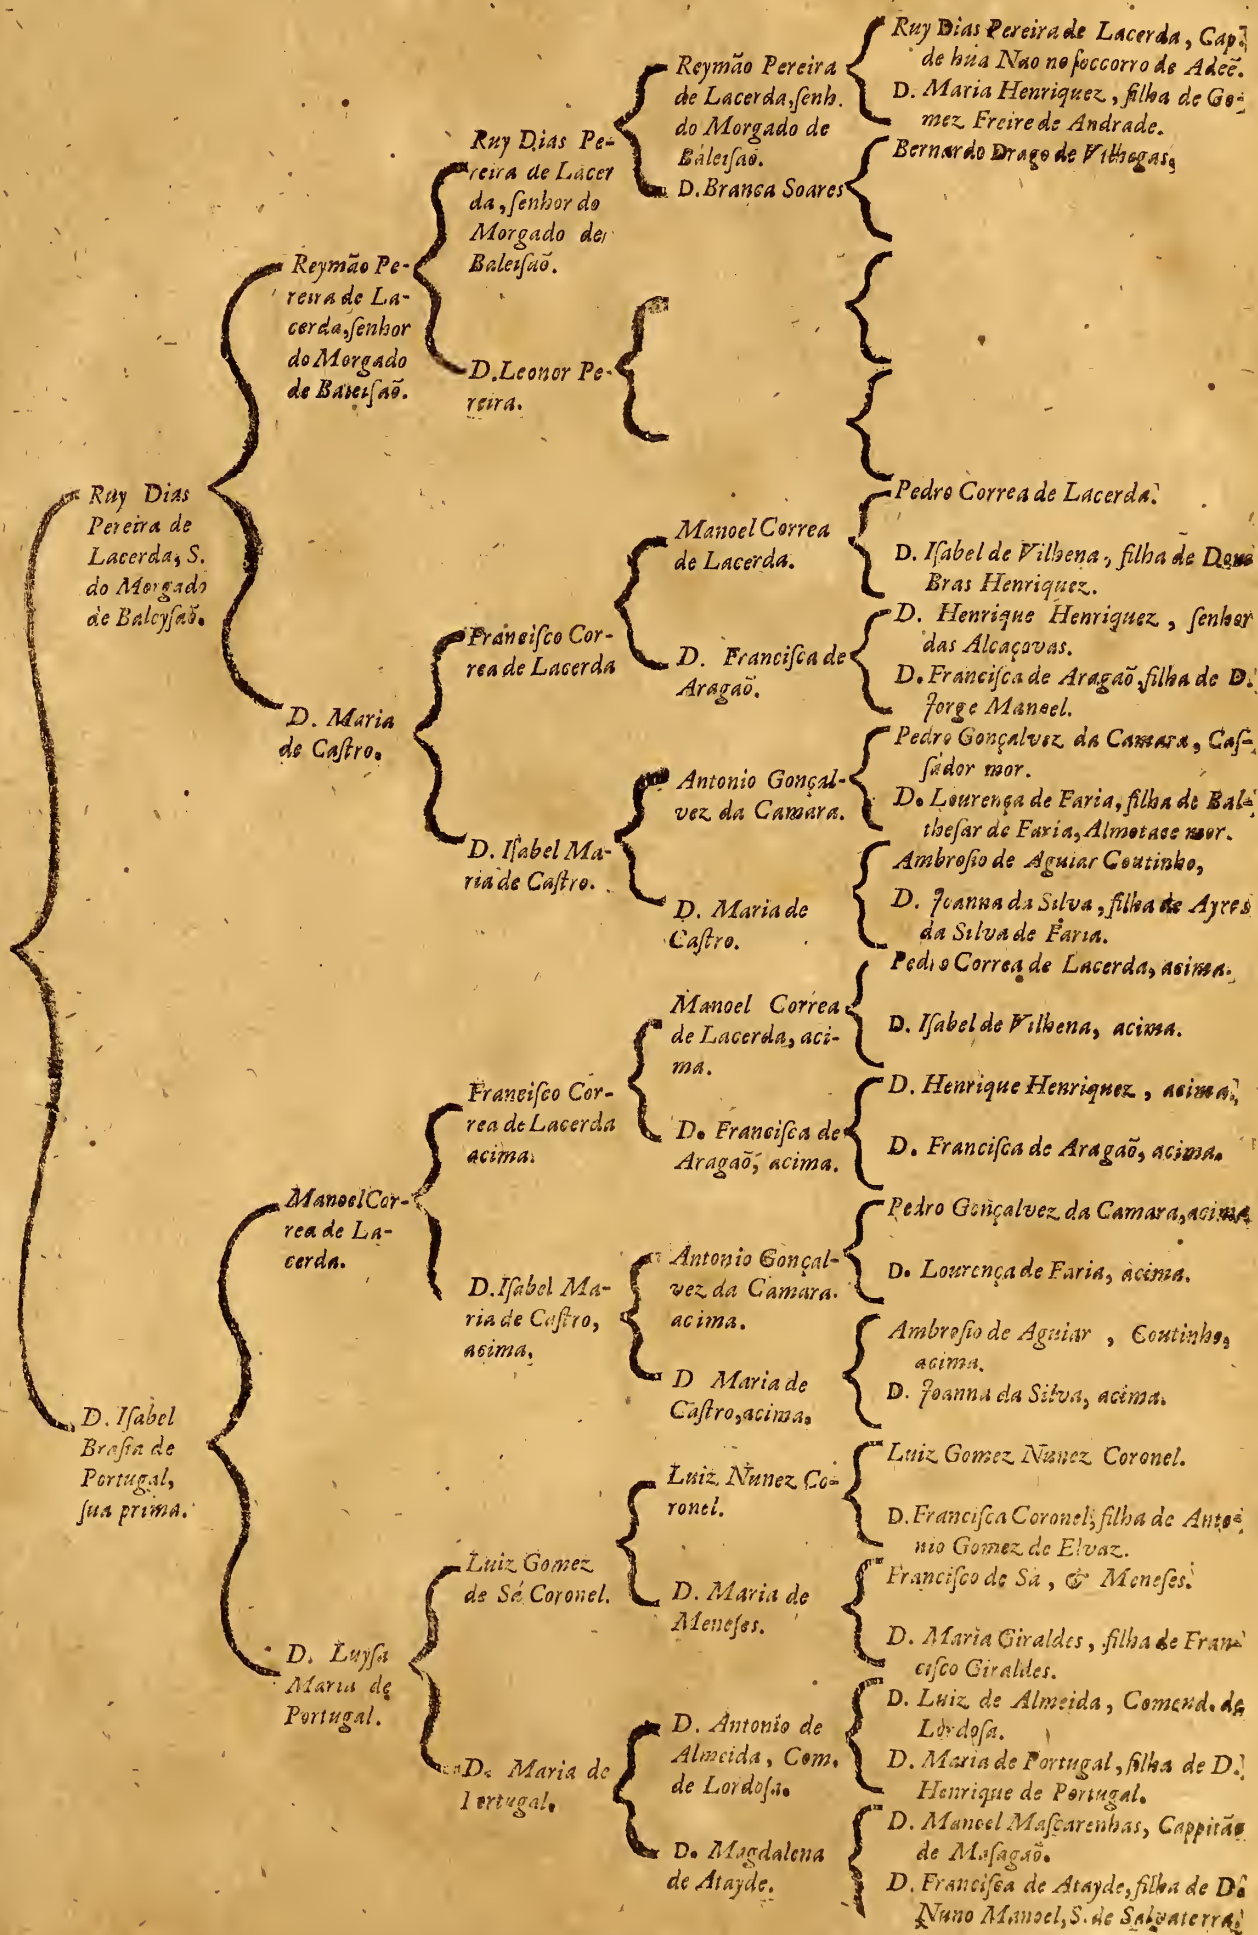 Ruy Dias
Pereira de
Lacerda, S.
do Morgado
de Baleysaõ.
D. Iſabel
Braſia de
Portugal,
ſua prima.
Reymão Pe-
reira de La-
cerda, ſenhor
do Morgado
de Baleiſaõ.
D. Maria
de Caſtro.
Manoel Cor-
rea de La-
cerda.
D. Luyſa
Maria de
Portugal.
Ruy Dias Pe-
reira de Lacer
da, ſenhor do
Morgado de
Baleiſaõ.
D. Leonor Pe-
reira.
Franciſco Cor-
rea de Lacerda
D. Iſabel Ma-
ria de Caſtro.
Franciſco Cor-
rea de Lacerda
acima.
D. Iſabel Ma-
ria de Caſtro,
acima,
Luiz Gomez
de Sá Coronel.
D. Maria de
Portugal.
Reymão Pereira
de Lacerda, ſenh.
do Morgado de
Baleiſaõ.
D. Branca Soares
Manoel Correa
de Lacerda.
D. Franciſca de
Aragaõ.
Antonio Gonçal-
vez da Camara.
D. Maria de
Caſtro.
Manoel Correa
de Lacerda, aci-
ma.
D. Franciſca de
Aragaõ, acima.
Antonio Gonçal-
vez da Camara.
acima.
D Maria de
Caſtro, acima,
Luiz Nunez Co-
ronel.
D. Maria de
Meneſes.
D. Antonio de
Almeida, Com.
de Lordoſa.
D. Magdalena
de Atayde.
Ruy Dias Pereira de Lacerda, Cap.
de hũa Nao no ſoccorro de Adeẽ.
D. Maria Henriquez, filha de Go-
mez Freire de Andrade.
Bernardo Drago de Vilhegas,
Pedro Correa de Lacerda.
D. Iſabel de Vilhena, filha de Dom
Bras Henriquez.
D. Henrique Henriquez, ſenhor
das Alcaçovas.
D. Franciſca de Aragaõ, filha de D.
Jorge Manoel.
Pedro Gonçalvez da Camara, Caſ-
ſador mor.
D. Lourença de Faria, filha de Bal-
theſar de Faria, Almotace mor.
Ambroſio de Aguiar Coutinho,
D. Joanna da Silva, filha de Ayres
da Silva de Faria.
Pedro Correa de Lacerda, acima.
D. Iſabel de Vilhena, acima.
D. Henrique Henriquez, acima.
D. Franciſca de Aragaõ, acima.
Pedro Gonçalvez da Camara, acima
D. Lourença de Faria, acima.
Ambroſio de Aguiar, Coutinho,
acima.
D. Joanna da Silva, acima.
Luiz Gomez Nunez Coronel.
D. Franciſca Coronel, filha de Anto-
nio Gomez de Elvaz.
Franciſco de Sa, & Meneſes.
D. Maria Giraldes, filha de Fran-
ciſco Giraldes.
D. Luiz de Almeida, Comend. de
Lordoſa.
D. Maria de Portugal, filha de D.
Henrique de Portugal.
D. Manoel Maſcarenhas, Cappitão
de Maſagaõ.
D. Franciſca de Atayde, filha de D.
Nuno Manoel, S. de Salvaterra.